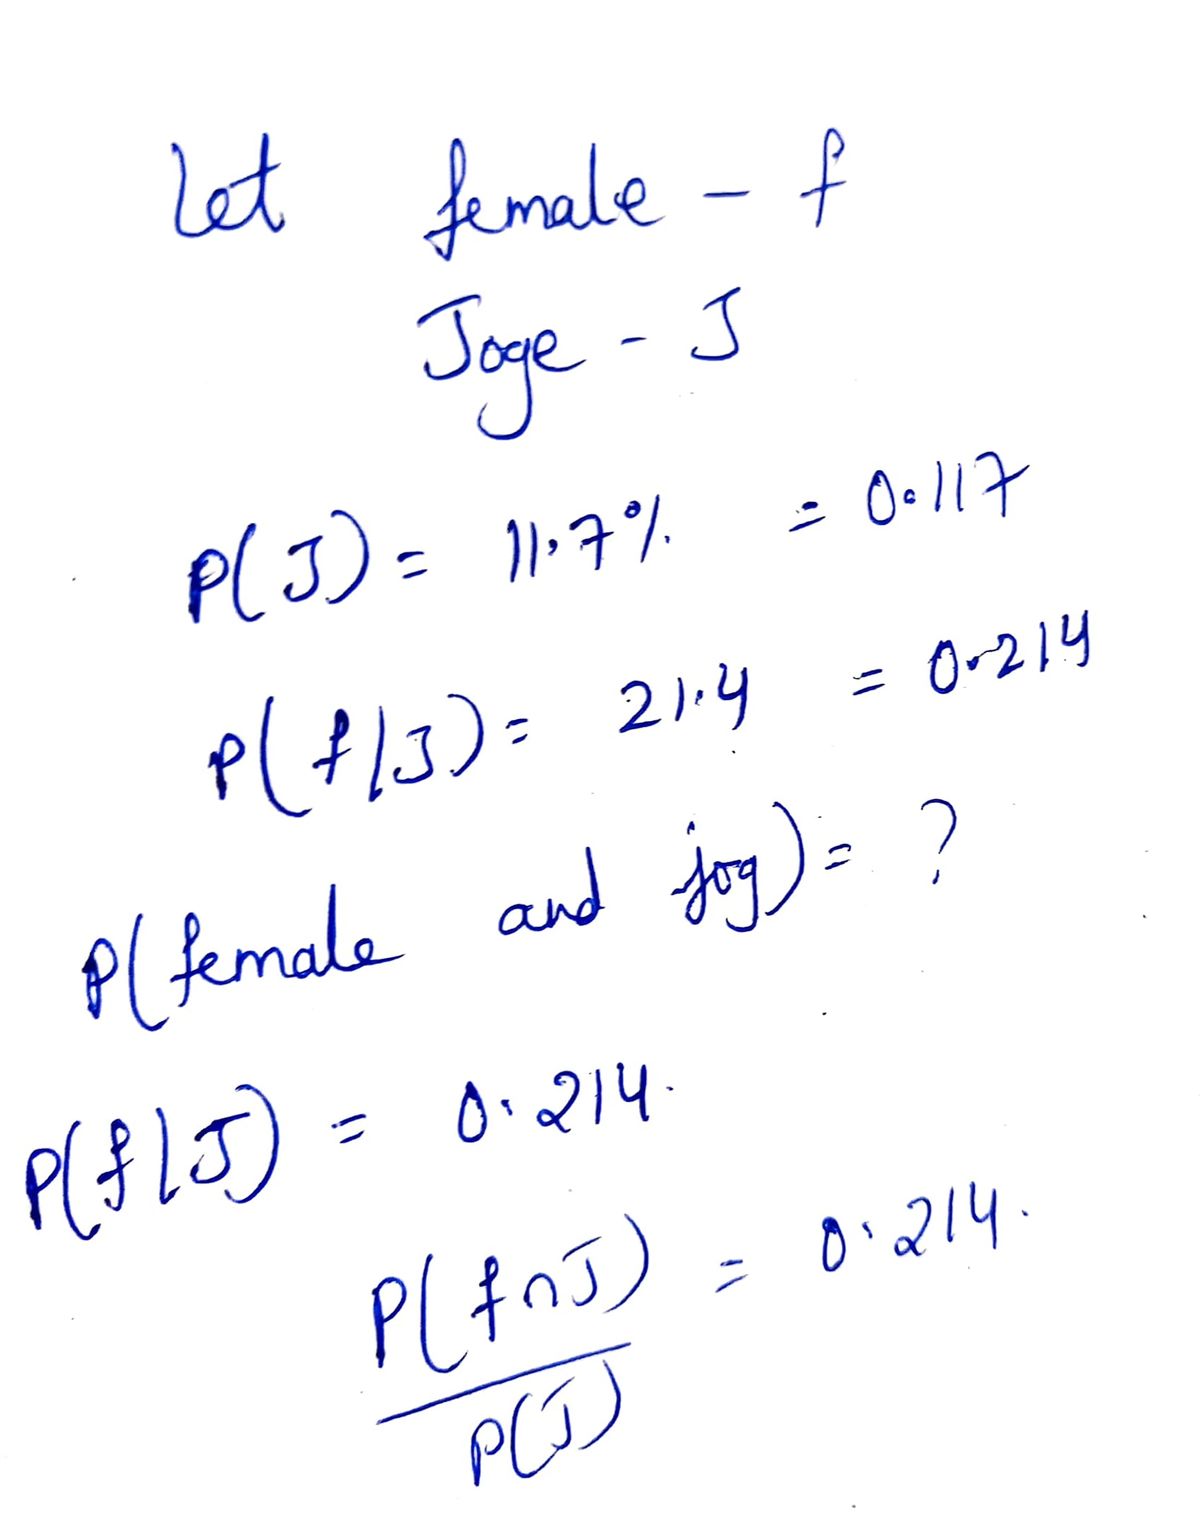 Let female - f
Joge - J
P(J) = 11.7% = 0.117
P(f/J) = 21.4 = 0.214
P(female and jog) = ?
P(f/J) = 0.214.
P(f∩J) = 0.214.
P(J)